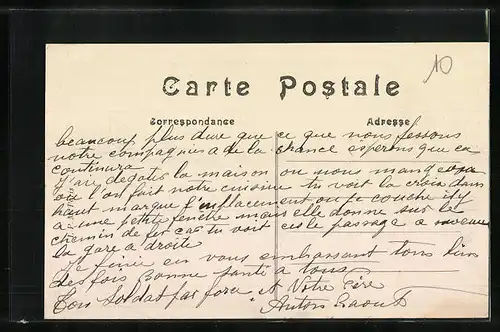 10
Carte Postale
Correspondance
Adresse
beaucoup plus dure que ce que nous fessons
notre compagnie a de la chance esperons que ca
continura
la maison ou nous mangeons
ou l'on fait notre cuisine tu voit la croix dans
haut marque l'emplacement ou je couche il y
a une petite fenetre mais elle donne sur le
chemin de fer car tu voit le passage a niveau
la gare a droite
Je finie en vous embrassant tous bien
des fois Bonne santé a tous
Ton Soldat par force et Votre
Anton Raoul